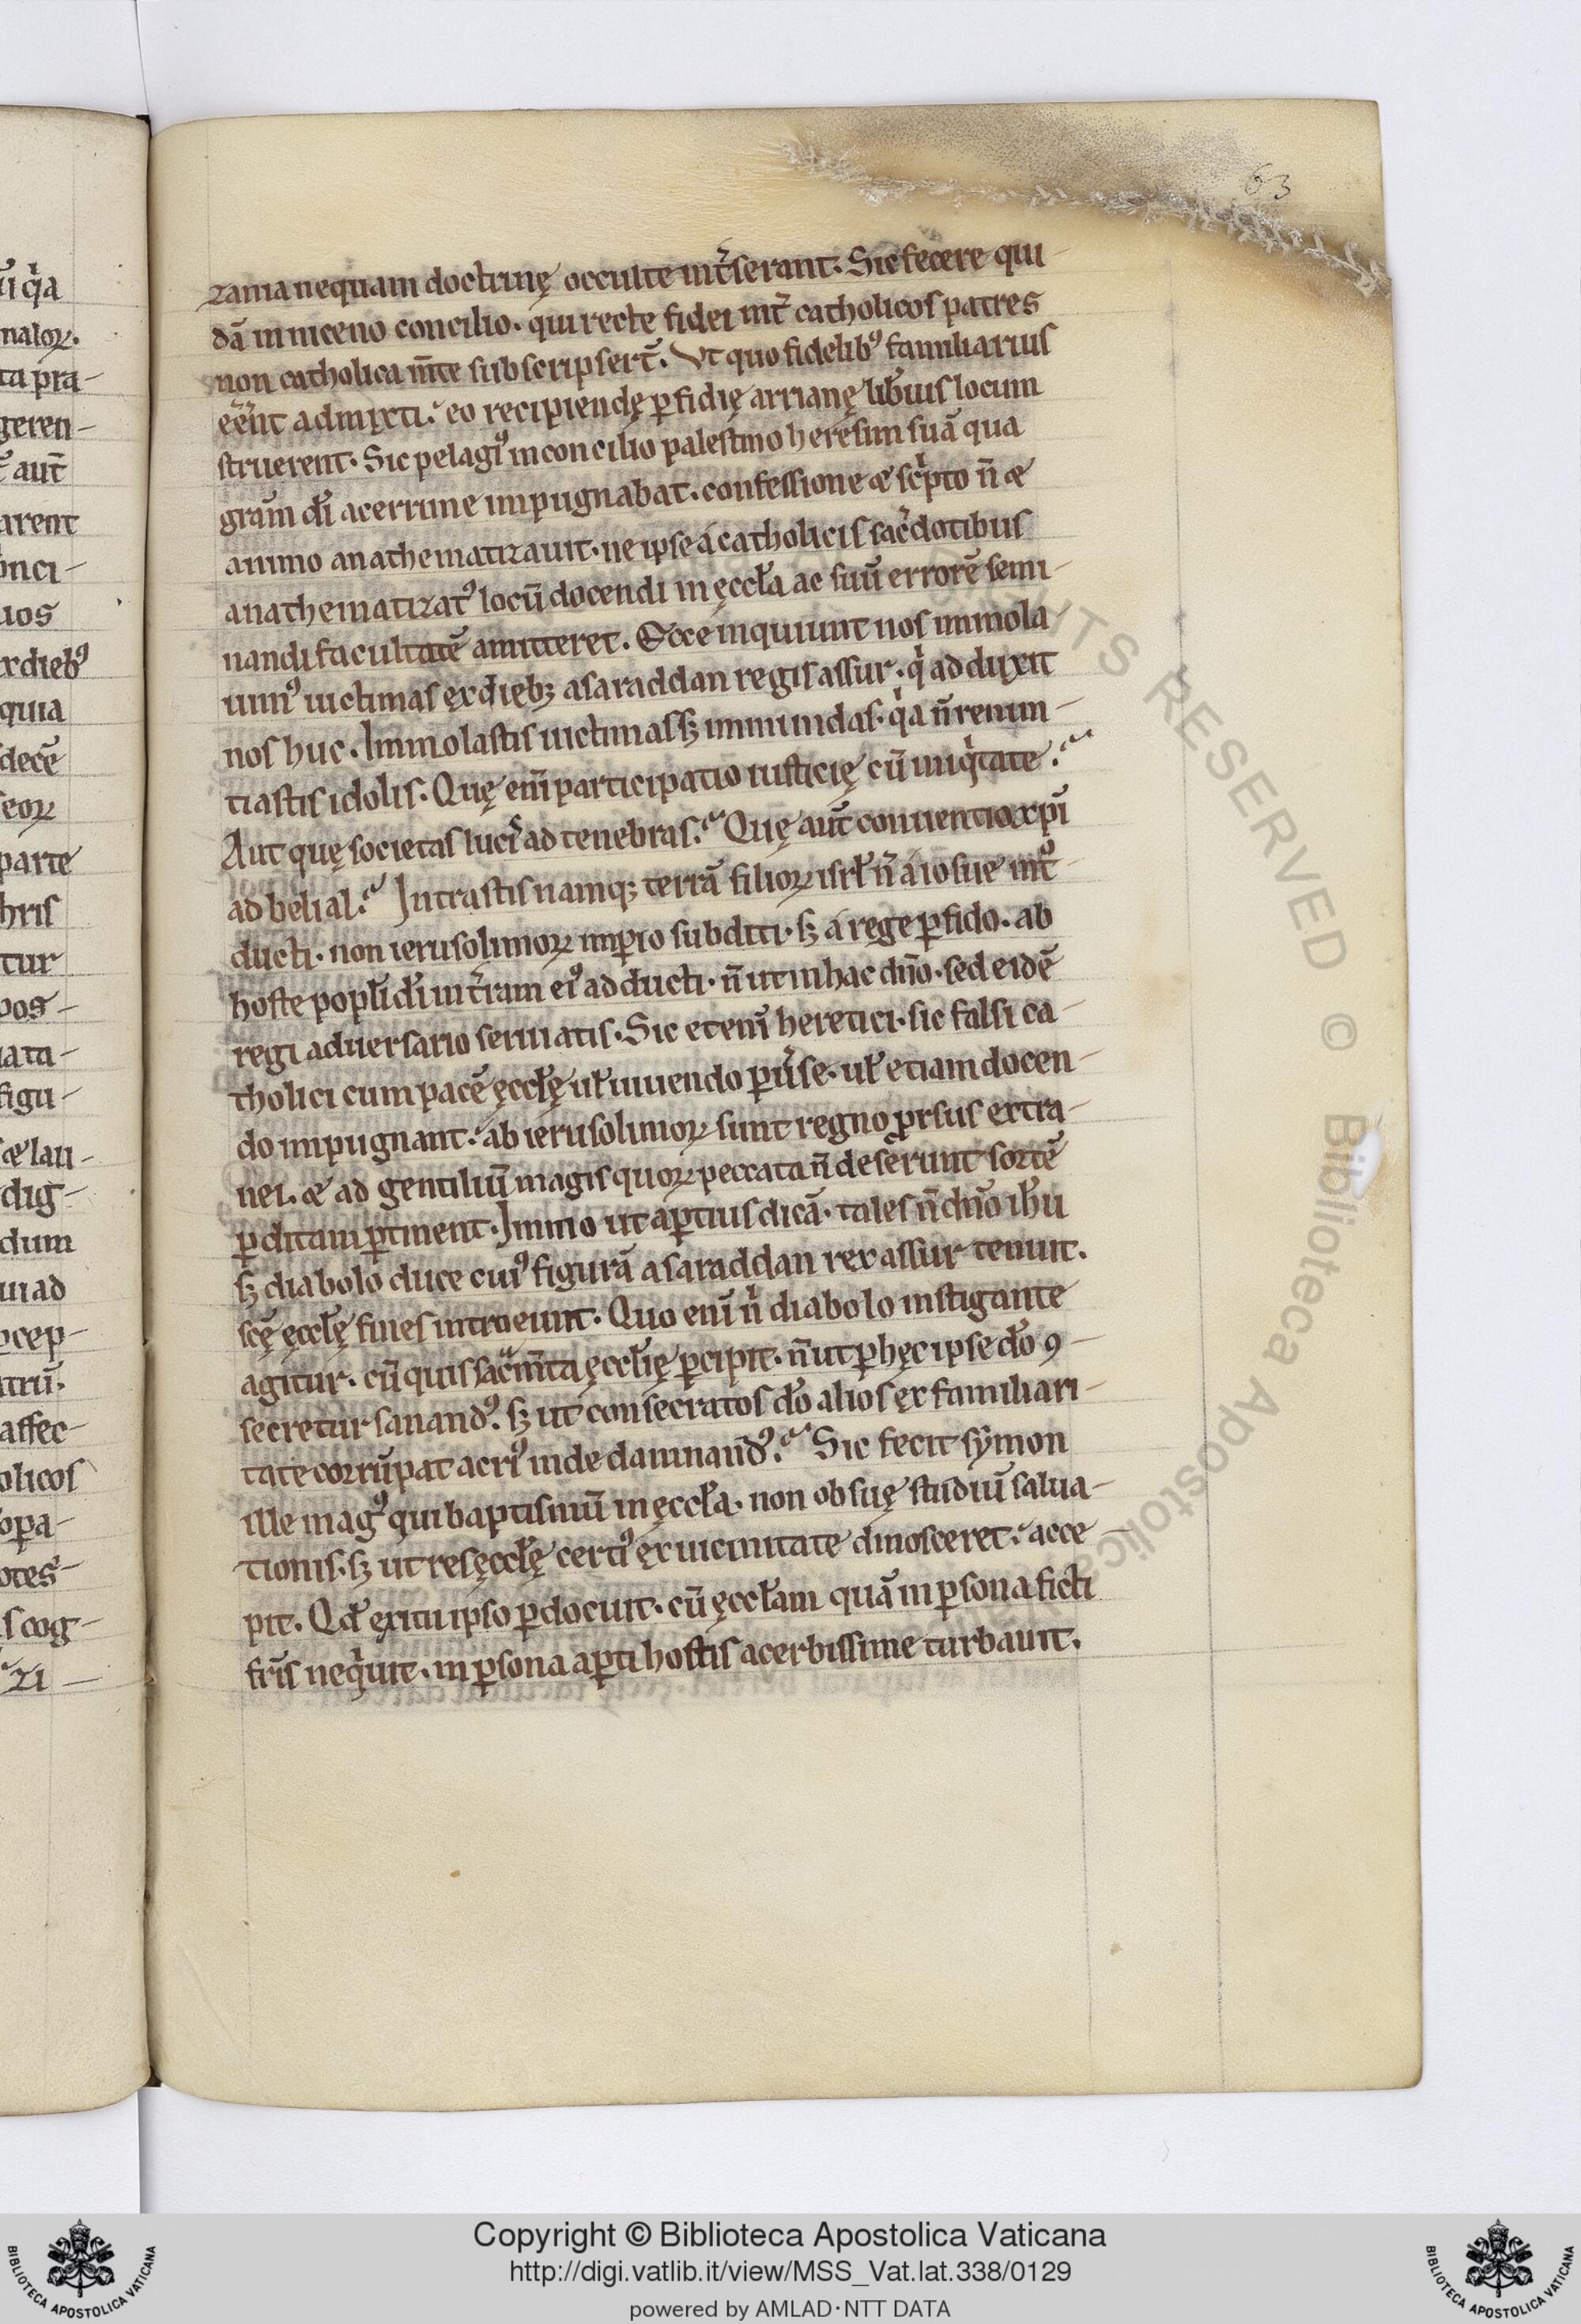 ūi qͥa
maloꝝ.
ta pra-
geren-
aut̄
arent
onci-
uos
ex dieb⁹
quia
decē
seoꝝ
parte
bris
tur
pos-
iata-
figu-
æ lau-
dig-
dum
ui ad
ꝑcep-
trū.
affec-
olicos
oꝑa-
otes-
s cog-
zi
63
zania nequam doctrinę occulte int̄serant. Sic fecere qui
dā in niceno concilio. qui recte fidei int̄ catholicos patres
non catholica m̄te subscripsert̄. Vt quo fidelib⁹ familiarius
eēnt admixti. eo recipiendę ꝑfidię arrianę lib̄ius locum
struerent. Sic pelagi⁹ in concilio palestino heresim suā qua
gram̄ dī acerrime impugnabat. confessione æ scͥpto n̄ æ
animo anathematizauit. ne ipse á catholicis sac̄dotibus
anathematizat⁹ locū docendi in ęccl̄a ac suū errorē semi-
nandi facultatē amitteret. Ecce inquiunt nos immola
uim⁹ uictimas ex diebꝫ asaraddan regis assur. qͥ adduxit
nos huc. Immolastis uictimas sꝫ immundas. qͥa n̄ renun-
tiastis idolis. Quę enī participatio iusticię cū iniqͥtate.
Aut quę societas luci ad tenebras. Quę aut̄ conuentio xp̄i
ad belial. Intrastis namqꝫ terrā filioꝝ isrl̄ n̄ á iosue int⁹
ducti. non ierusolimoꝝ imꝑio subditi. sꝫ á rege ꝑfido. ab
hoste popl̄i dī in t̄ram ei⁹ adducti. n̄ ut in hac dn̄o. sed eidē
regi aduersario seruiatis. Sic etenī heretici. sic falsi ca-
tholici cum pacē ęccl̄ę ul̄ uiuendo ꝑu̇se. ul̄ etiam docen-
do impugnant. ab ierusolimoꝝ sunt regno ꝓrsus extra-
nei. æ ad gentiliū magis quoꝝ peccata n̄ deserunt sortē
ꝑditam ꝑtinent. Immo ut aꝑtius dicā. tales n̄ dn̄o ih̄u
sꝫ diabolo duce cui⁹ figurā asaraddan rex assur tenuit.
scę̄ ęccl̄ę fines intraeunt. Quo enī nͥ diabolo instigante
agitur. cū quis sac̄m̄ta ęccl̄ię ꝑcipit. n̄ ut ꝑ hęc ipse dō ꝯ-
secretur sanand⁹. sꝫ ut consecratos dō alios ex familiari-
tate corrūpat acri⁹ inde damnand⁹. Sic fecit symon
ille mag⁹ qui baptismū in ęccl̄a. non ob suę studiū salua-
tionis. sꝫ ut res ęccl̄ę certi⁹ ex uicinitate dinosceret. acce
pit. Qd̄ exitu ipso ꝑdocuit. cū ęccl̄am quā in ꝑsona ficti
fr̄is neqͥuit. in ꝑsona aꝑti hostis acerbissime turbauit.
RIGHTS RESERVED © Biblioteca Apostolica
Copyright © Biblioteca Apostolica Vaticana
http://digi.vatlib.it/view/MSS_Vat.lat.338/0129
powered by AMLAD·NTT DATA
BIBLIOTECA APOSTOLICA VATICANA
BIBLIOTECA APOSTOLICA VATICANA